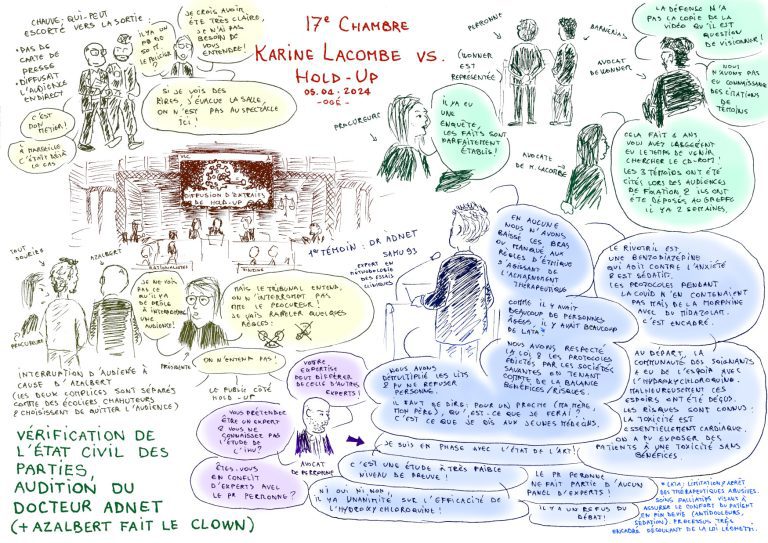 17e CHAMBRE
KARINE LACOMBE VS.
HOLD-UP
CHAUVE, QUI-PEUT
ESCORTÉ VERS LA SORTIE :
• PAS DE
CARTE DE
PRESSE
• DIFFUSAIT
L'AUDIENCE
EN DIRECT
C'EST
MON
MÉTIER !
À MARSEILLE
C'ÉTAIT DÉJÀ
LE CAS
JE CROIS AVOIR
ÉTÉ TRÈS CLAIRE,
JE N'AI PAS
BESOIN DE
VOUS
ENTENDRE !
SI JE VOIS DES
RIRES, J'ÉVACUE LA SALLE,
ON N'EST PAS AU SPECTACLE
ICI !
PERRONNE
BARNERIAS
(WONNER
EST
REPRÉSENTÉE)
AVOCAT
DE WONNER
LA DÉFENSE N'A
PAS LA COPIE DE LA
VIDÉO QU'IL EST
QUESTION
DE VISIONNER !
NOUS
N'AVONS PAS
EU CONNAISSANCE
DES CITATIONS
DE
TÉMOINS
PROCUREURE
IL Y A EU
UNE
ENQUÊTE,
LES FAITS SONT
PARFAITEMENT
ÉTABLIS !
AVOCATE
DE K. LACOMBE
CELA FAIT 2 ANS
VOUS AVEZ LARGEMENT
EU LE TEMPS DE VENIR
CHERCHER LE CD-ROM !
LES 3 TÉMOINS ONT ÉTÉ
CITÉS LORS DES AUDIENCES
DE FIXATION & ILS ONT
ÉTÉ DÉPOSÉS AU GREFFE
IL Y A 2 SEMAINES.
DIFFUSION D'EXTRAITS
DE HOLD-UP
TOUT
SOURIRE
AZALBERT
PROCUREURE
JE NE VOIS
PAS CE
QU'IL Y A
DE DRÔLE
À INTERROMPRE
UNE
AUDIENCE !
PRÉSIDENTE
MAIS LE TRIBUNAL ENTEND,
ON N'INTERROMPT PAS
MME LE PROCUREUR !
JE VAIS RAPPELER QUELQUES
RÈGLES :
ON N'ENTEND PAS !
LE PUBLIC CÔTÉ
HOLD-UP
INTERRUPTION D'AUDIENCE À
CAUSE D'AZALBERT
(LES DEUX COMPLICES SONT SÉPARÉS
COMME DES ÉCOLIERS CHAHUTEURS
& CHOISISSENT DE QUITTER L'AUDIENCE)
VÉRIFICATION DE
L'ÉTAT CIVIL DES
PARTIES,
AUDITION DU
DOCTEUR ADNET
(+ AZALBERT FAIT LE CLOWN)
1er TÉMOIN : DR ADNET
SAMU 93
EXPERT EN
MÉTHODOLOGIE
DES ESSAIS
CLINIQUES
EN AUCUNE
NOUS N'AVONS
BAISSÉ LES BRAS
OU MANQUÉ AUX
RÈGLES D'ÉTHIQUE
S'AGISSANT DE
L'ACHARNEMENT
THÉRAPEUTIQUE
COMME IL Y AVAIT
BEAUCOUP DE PERSONNES
ÂGÉES, IL Y AVAIT BEAUCOUP
DE LATA*
NOUS AVONS RESPECTÉ
LA LOI & LES PROTOCOLES
ÉDICTÉS PAR LES SOCIÉTÉS
SAVANTES EN TENANT
COMPTE DE LA BALANCE
BÉNÉFICES/RISQUES.
NOUS AVONS
DÉMULTIPLIÉ LES LITS
& PU NE REFUSER
PERSONNE.
IL FAUT SE DIRE : POUR UN PROCHE (MA MÈRE,
MON PÈRE), QU'EST-CE QUE JE FERAI ?
C'EST CE QUE JE DIS AUX JEUNES MÉDECINS.
LE RIVOTRIL EST
UNE BENZODIAZÉPINE
QUI AGIT CONTRE L'ANXIÉTÉ
& EST SÉDATIF.
LES PROTOCOLES PENDANT
LA COVID N'EN CONTENAIENT
PAS MAIS DE LA MORPHINE
AVEC DU MIDAZOLAM.
C'EST ENCADRÉ.
AU DÉPART, LA
COMMUNAUTÉ DES SOIGNANTS
A EU DE L'ESPOIR AVEC
L'HYDROXYCHLOROQUINE.
MALHEUREUSEMENT CES
ESPOIRS ONT ÉTÉ DÉÇUS.
LES RISQUES SONT CONNUS :
LA TOXICITÉ EST
ESSENTIELLEMENT CARDIAQUE.
ON A PU EXPOSER DES
PATIENTS À UNE TOXICITÉ SANS
BÉNÉFICES.
VOTRE
EXPERTISE
PEUT DIFFÉRER
DE CELLE D'AUTRES
EXPERTS !
VOUS PRÉTENDEZ
ÊTRE UN EXPERT
& VOUS NE
CONNAISSEZ PAS
L'ÉTUDE DE
L'IHU ?
ÊTES-VOUS
EN CONFLIT
D'EXPERTS AVEC
LE PR PERRONNE ?
AVOCAT
DE PERRONNE
JE SUIS EN PHASE AVEC L'ÉTAT DE L'ART !
C'EST UNE ÉTUDE À TRÈS FAIBLE
NIVEAU DE PREUVE !
NI OUI NI NON,
IL Y A UNANIMITÉ SUR L'EFFICACITÉ DE
L'HYDROXYCHLOROQUINE !
LE PR PERRONNE
NE FAIT PARTIE D'AUCUN
PANEL D'EXPERTS !
IL Y A UN REFUS DU
DÉBAT !
* LATA : LIMITATION / ARRÊT
DES THÉRAPEUTIQUES ACTIVES.
SOINS PALLIATIFS VISANT À
ASSURER LE CONFORT DU PATIENT
EN FIN DE VIE (ANTIDOULEURS,
SÉDATION). PROCESSUS TRÈS
ENCADRÉ DÉCOULANT DE LA LOI LÉONETTI.